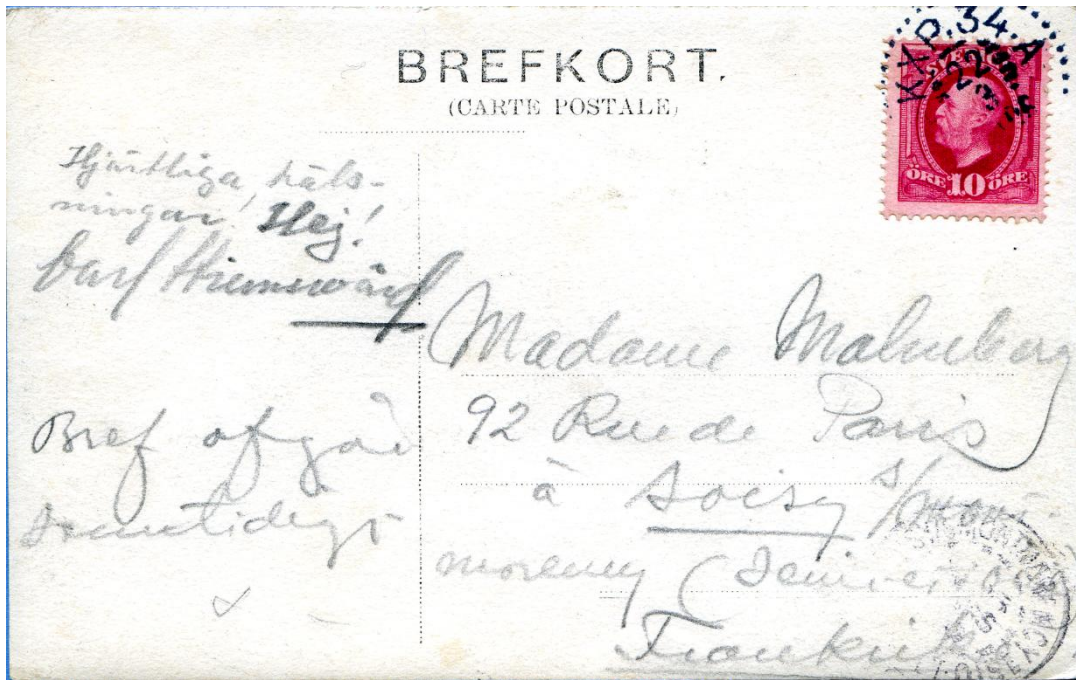 BREFKORT.
(CARTE POSTALE)
K.X.P.34.A
22
SVERIGE
ÖRE 10 ÖRE
Hjärtliga häls-
ningar! Hej!
Carl
Bref afgår
samtidigt
Madame Malmberg
92 Rue de Paris
à Soisy s/
morency (Seine et
Frankrike